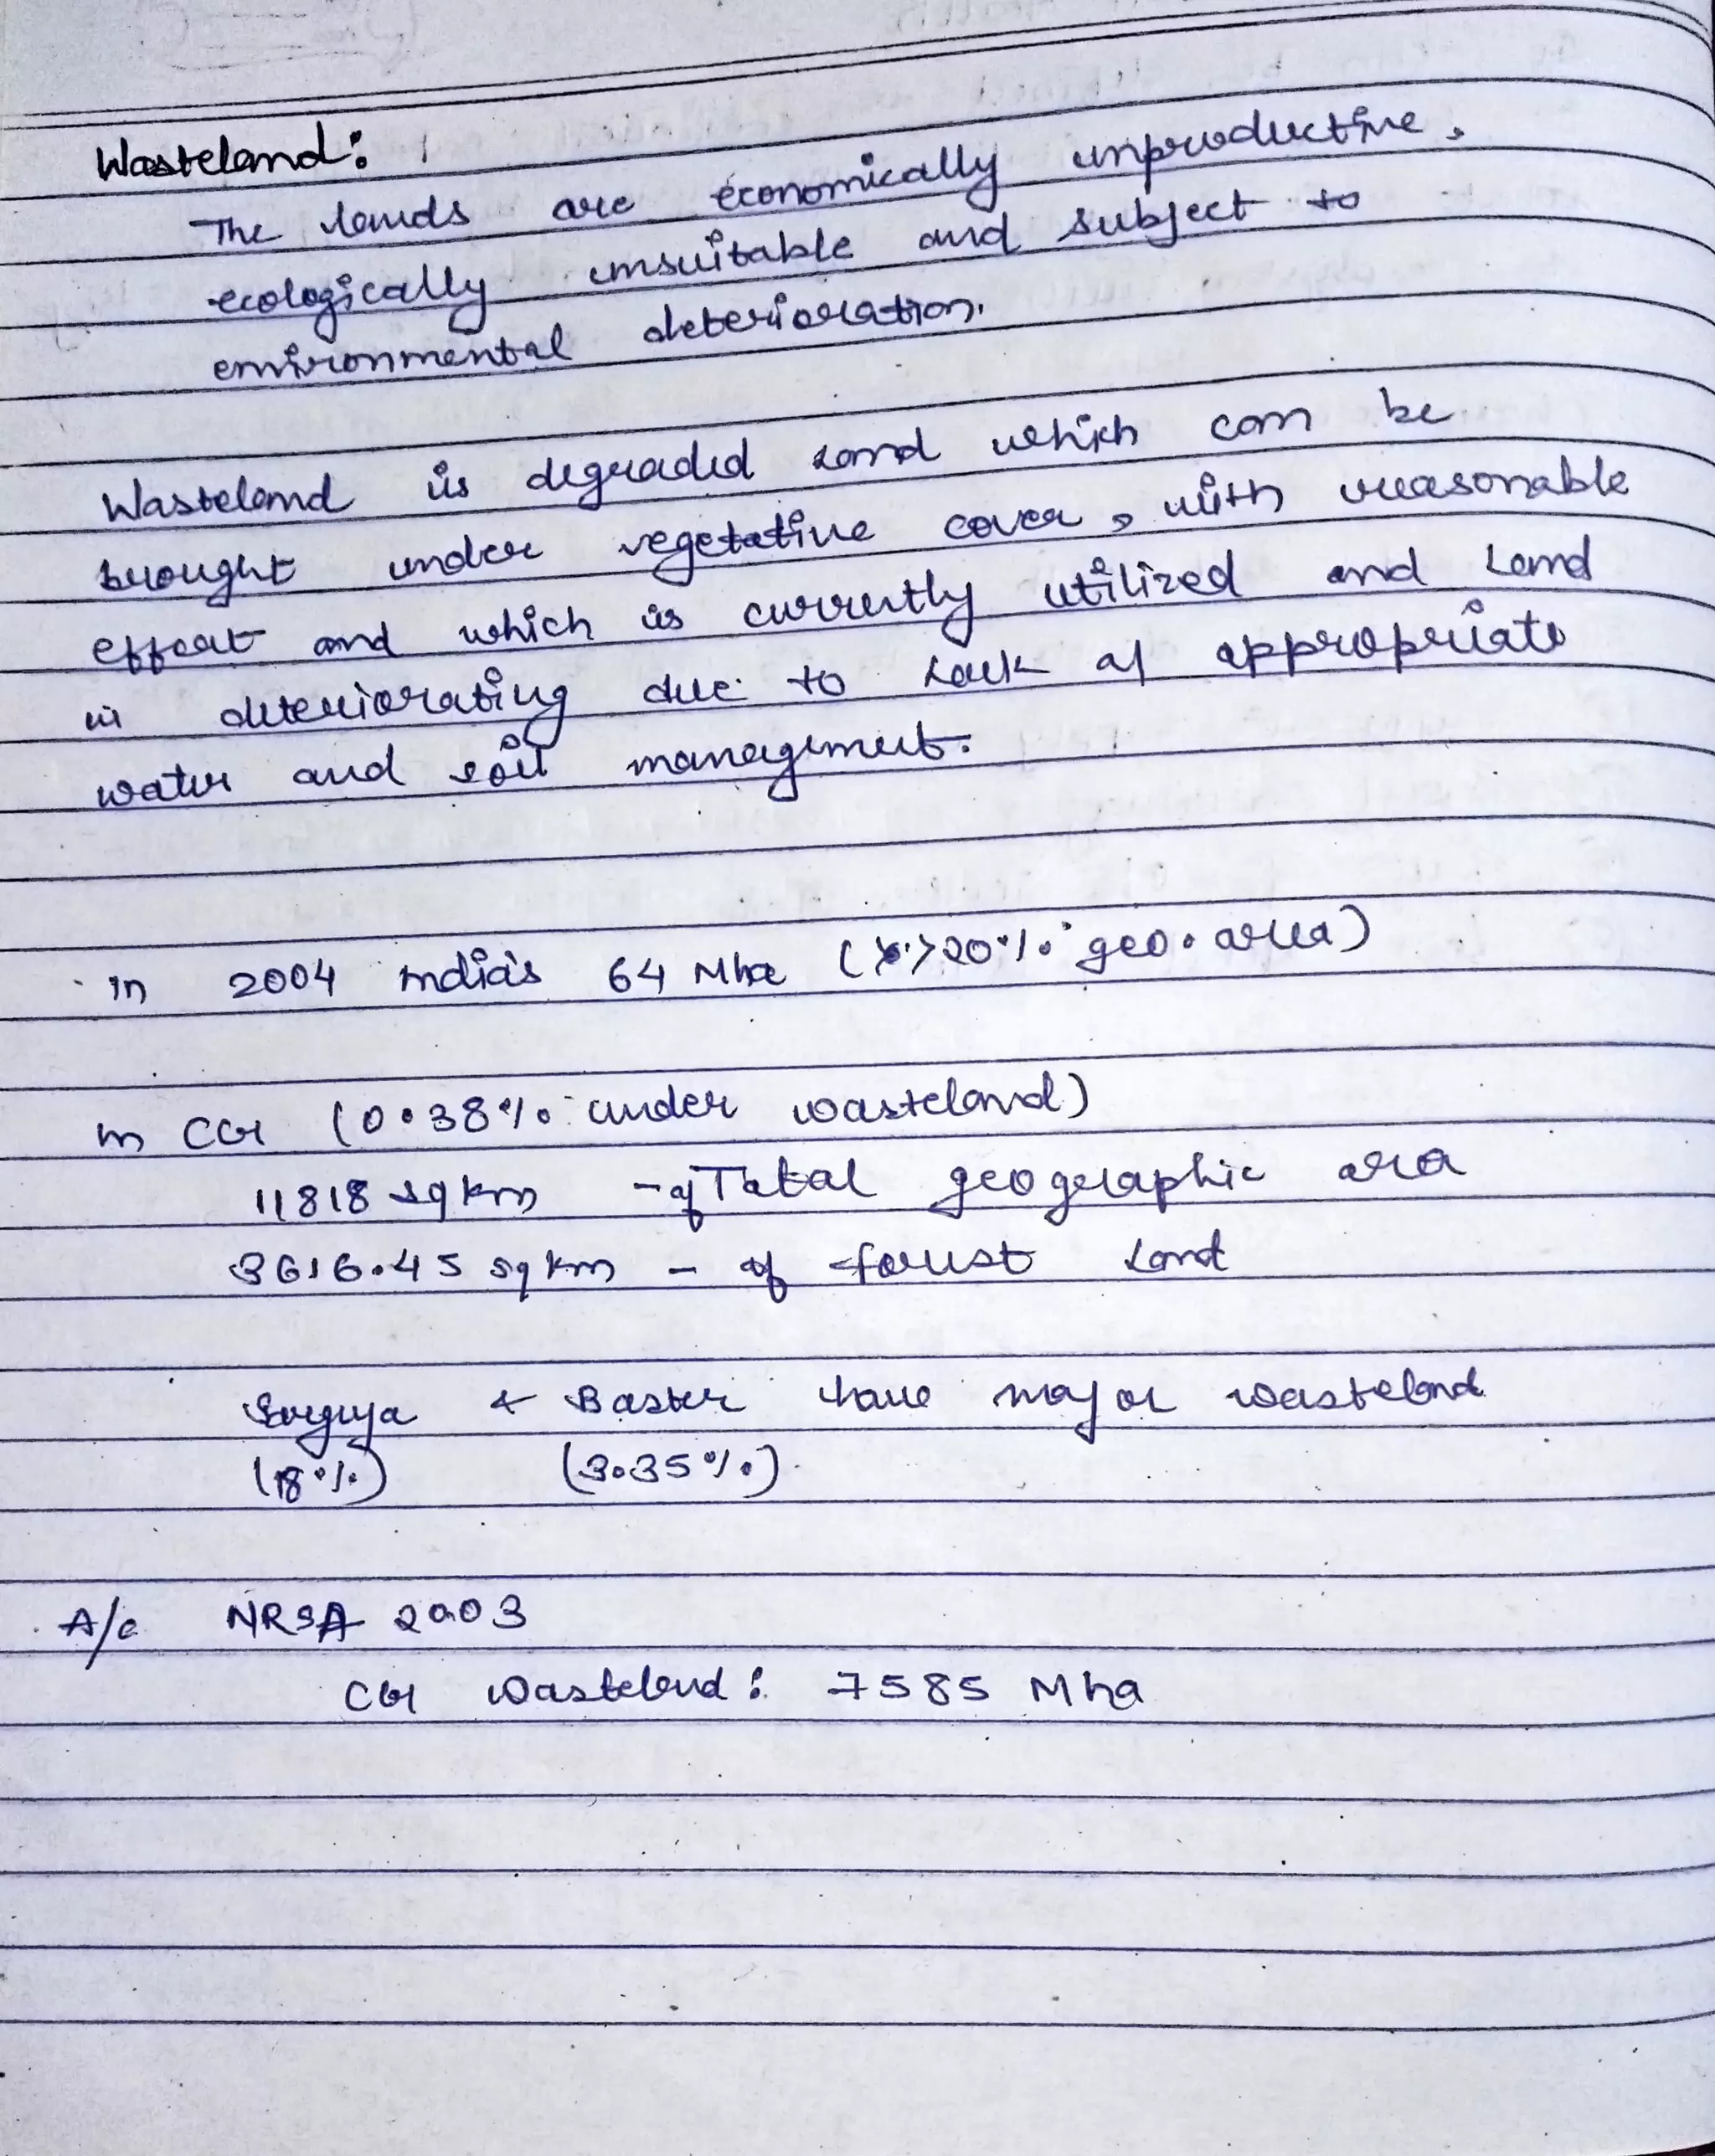 Wasteland:
The lands are economically unproductive,
ecologically unsuitable and subject to
environmental deterioration.
Wasteland is degraded land which can be
brought under vegetative cover, with reasonable
effort and which is currently utilized and Land
is deteriorating due to Lack of appropriate
water and soil management.
in 2004 india's 64 Mha (>20% geo. area)
in CG (0.38% under wasteland)
11818 sq km - of Total geographic area
3616.45 sq km - of forest Land
Sorguja & Baster have major wasteland
(18%) (3.35%)
A/c NRSA 2003
CG Wasteland: 7585 Mha